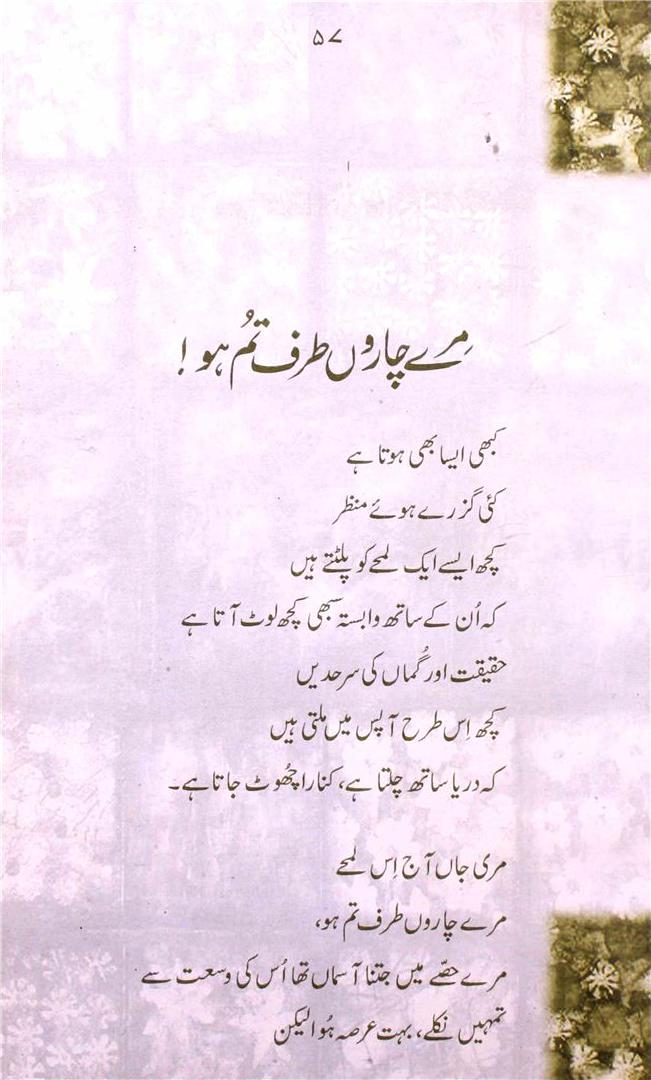 ۵۷
مِرے چاروں طرف تُم ہو !
کبھی ایسا بھی ہوتا ہے
کئی گزرے ہوئے منظر
کچھ ایسے ایک لمحے کو پلٹتے ہیں
کہ اُن کے ساتھ وابستہ سبھی کچھ لوٹ آتا ہے
حقیقت اور گُماں کی سرحدیں
کچھ اِس طرح آپس میں ملتی ہیں
کہ دریا ساتھ چلتا ہے، کنارا چھُوٹ جاتا ہے۔
مری جاں آج اِس لمحے
مرے چاروں طرف تم ہو،
مرے حصّے میں جتنا آسماں تھا اُس کی وسعت سے
تمہیں نکلے، بہت عرصہ ہُوا لیکن